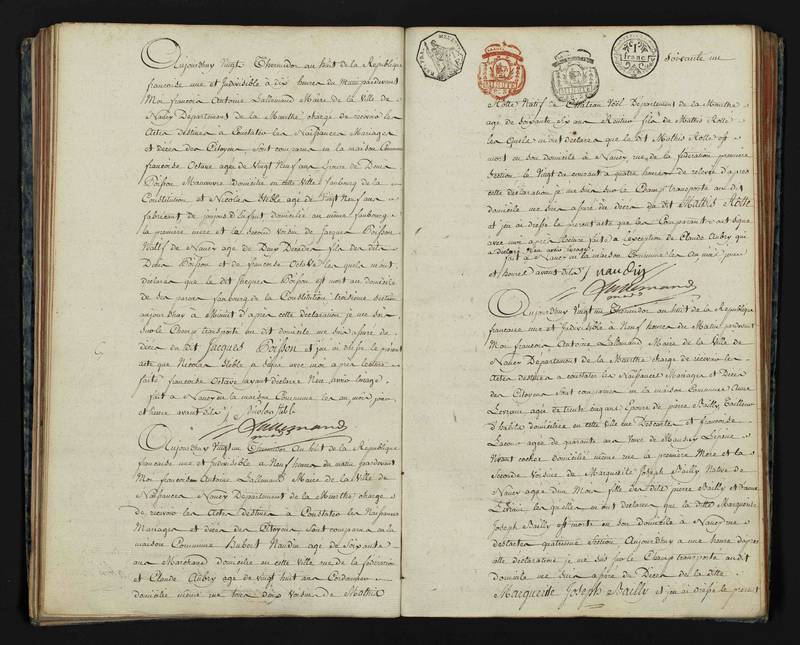 Aujourdhuy Vingt Thermidor an huit de la Republique
francoise une et Indivisible à dix heures du matin pardevant
Moi françois Antoine Lallemand Maire de la Ville de
Nancy Département de la Meurthe chargé de recevoir les
Actes destinés a Constater les Naissances Mariages
et décès des Citoyens Sont comparus en la maison Commune
francoise Octave agée de Vingt Neuf ans Epouse de
Poisson Manœuvre domicilié en cette Ville faubourg de la
Constitution et Nicolas Hable agé de Vingt Neuf ans
fabricant de domicilié au même faubourg
la première mere et le Second Voisin de Jacques Poisson
Natif de Nancy agé de Deux Décades fils des dits
Poisson et de francoise Octave les quels m'ont
declaré que le dit Jacques Poisson est mort au domicile
de ses pere faubourg de la Constitution troisième Section
aujourdhuy à Minuit d'après cette declaration je me suis
Sur le Champ transporté au dit domicile me suis assuré du
décès du dit Jacques Poisson et j'ai dressé le présent
acte que Nicolas Hable a Signé avec moi après lecture
faite francoise Octave ayant déclaré
fait à Nancy en la maison Commune les an mois jour
et heure avant dits Nicolas Hable
Lallemand
maire
Aujourdhuy Vingt un Thermidor An huit de la Republique
francoise une et Indivisible à Neuf heures du matin pardevant
Moi françois Antoine Lallemand Maire de la Ville de
Nancy Département de la Meurthe chargé
de recevoir les Actes destinés à Constater les Naissances
Mariages et décès des Citoyens Sont comparus en la
maison Commune Hubert Naudin agé de Soixante
ans Marchand domicilié en cette Ville rue de la fédération
et Claude Aubry agé de vingt huit ans Cordonnier
domicilié même rue tous deux voisins de Mathis
1
franc
soixante un
Rolle Natif de Château Département de la Meurthe
agé de Soixante Six ans Rentier fils de Mathis Rolle
les Quels m'ont declaré que le dit Mathis Rolle est
mort en son domicile à Nancy rue de la fédération première
Section le Vingt du courant a quatre heures de relevée d'apres
cette declaration je me suis sur le Champ transporté au dit
domicile me suis assuré du décès du dit Mathis Rolle
et j'ai dressé le présent acte que les Comparants ont signé
avec moi après lecture faite à l'exception de Claude Aubry qui
a declaré
fait à Nancy en la maison Commune les an mois jour
et heure avant dits Naudin
Lallemand
maire
Aujourdhuy Vingt un Thermidor an huit de la Republique
francaise une et Indivisible à Neuf heures du Matin pardevant
Moi françois Antoine Lallemand Maire de la Ville de
Nancy Département de la Meurthe chargé de recevoir les
Actes destinés a constater les Naissances Mariages et Décès
des Citoyens Sont comparus en la maison Commune Anne
agée de trente cinq ans Epouse de pierre Bailly Tailleur
d'habits domiciliée en cette Ville rue Descartes et francoise
agée de quarante ans Veuve de
Vivant cocher domiciliée même rue la première Mere et la
Seconde Voisine de Marguerite Joseph Bailly Native de
Nancy agée d'un Mois fille des dits pierre Bailly et d'anne
les quelles m'ont declaré que la ditte Marguerite
Joseph Bailly est morte en son domicile à Nancy rue
descartes quatrième Section Aujourdhuy à une heure d'après
cette declaration je me suis sur le Champ transporté au dit
domicile me suis assuré du Décès de la ditte
Marguerite Joseph Bailly et j'ai dressé le présent